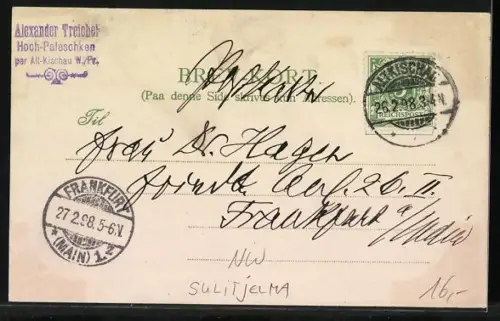 Alexander Treichel
Hoch-Paleschken
per Alt-Kischau W./Pr.
BREVKORT
(Paa denne Side skrives kun Adressen).
ALTKISCHAU
26.2.98.3-4.N.
REICHSPOST
Til
Frau Dr. Hagen
26 II
Frankfurt a/Main
FRANKFURT
27.2.98.5-6.V.
* (MAIN) 1. *
NW
SULITJELMA
16,-